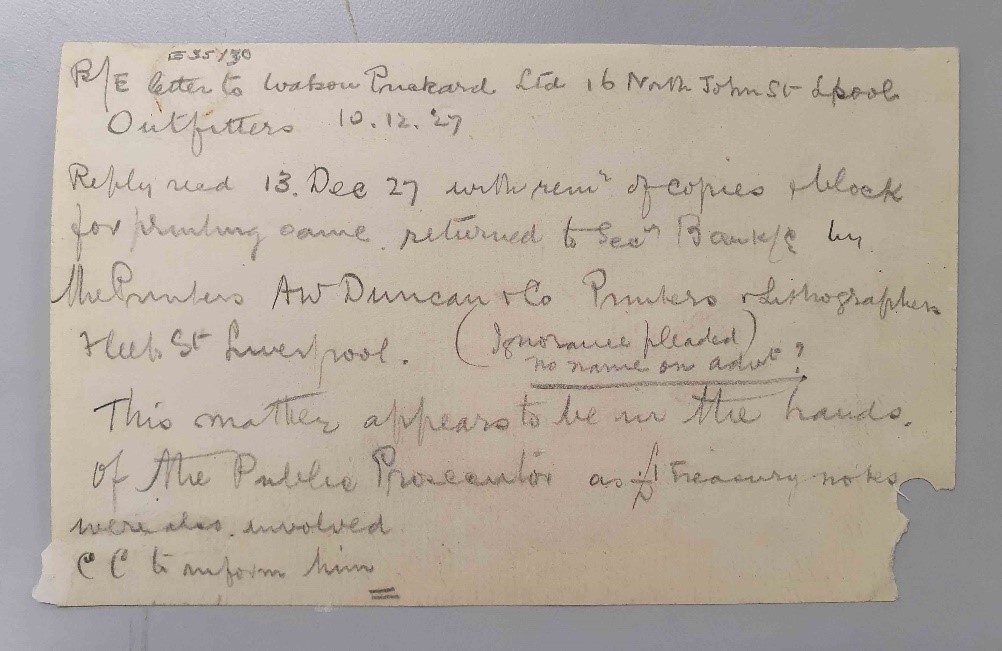 E35/30
B/E letter to Watson Prickard Ltd 16 North John St Lpool
Outfitters 10.12.27
Reply recd 13. Dec 27 with remr of copies & block
for printing same returned to Secy Bank/E by
the Printers AW Duncan & Co Printers & Lithographers
Fleet St Liverpool. (Ignorance pleaded)
no name on advt?
This matter appears to be in the hands.
of the Public Prosecutor as £1 Treasury notes
were also involved
C C to inform him